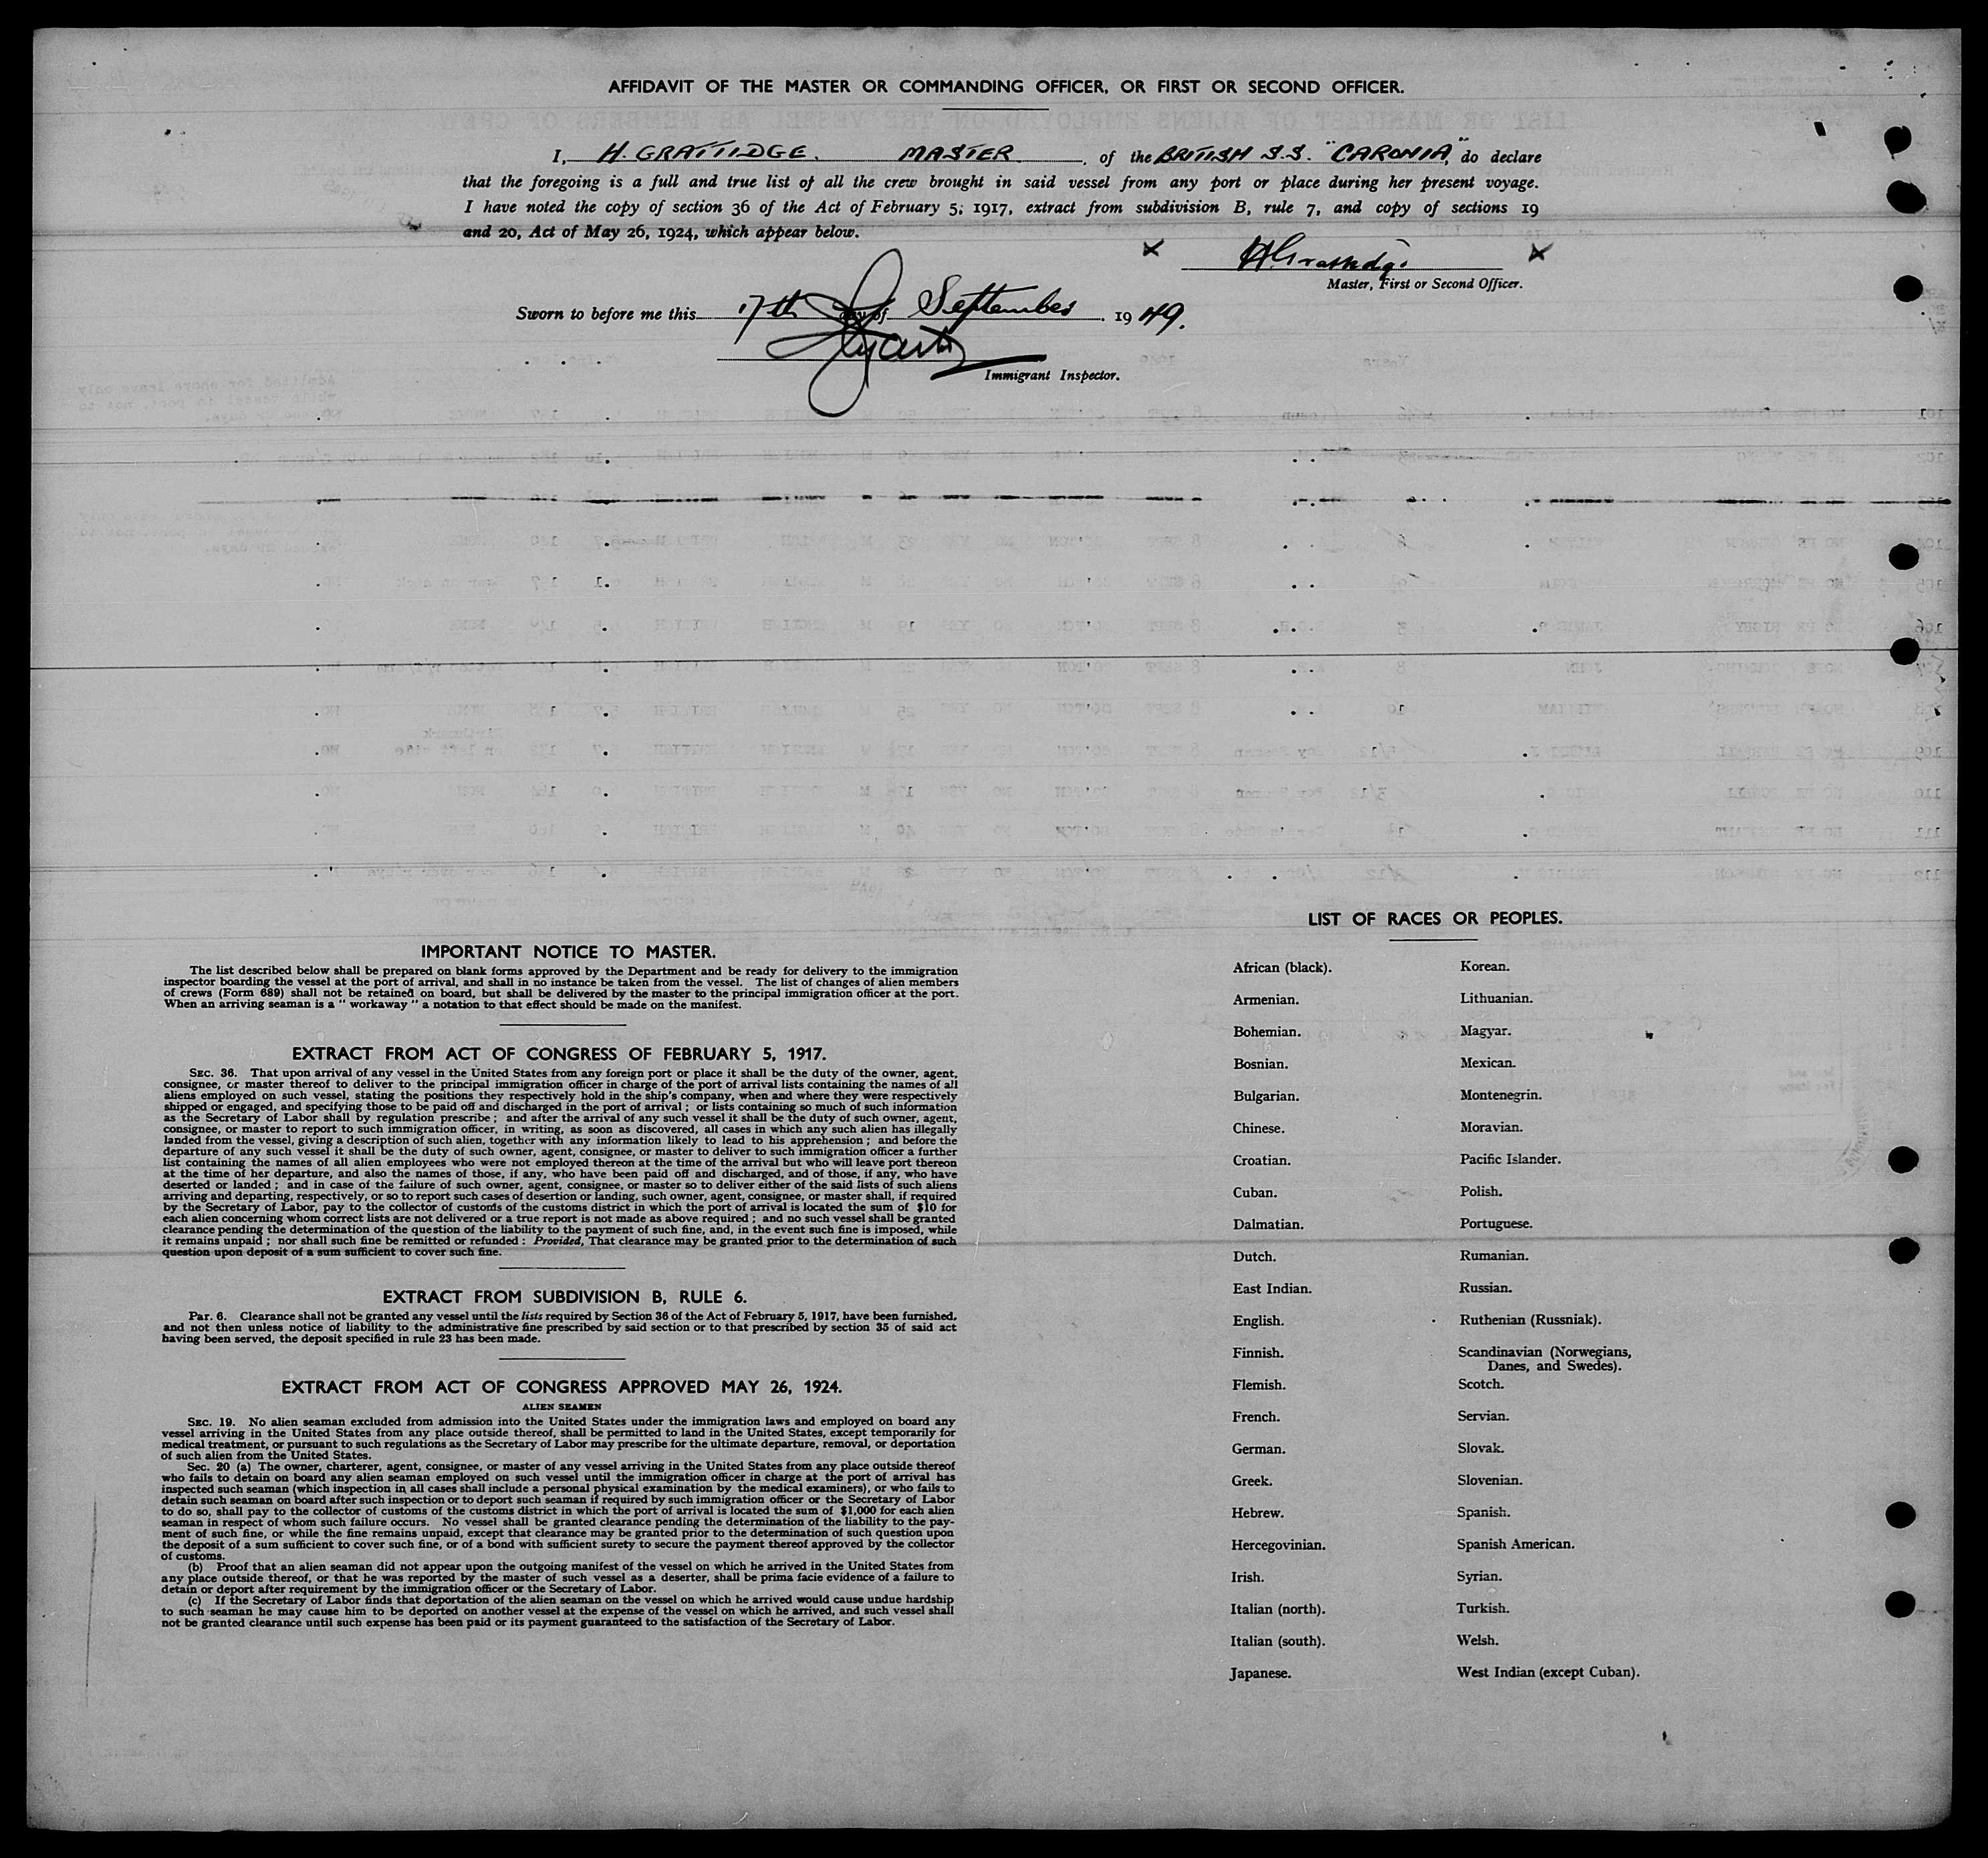 AFFIDAVIT OF THE MASTER OR COMMANDING OFFICER, OR FIRST OR SECOND OFFICER.
I, H. GRATTIDGE. MASTER , of the BRITISH S.S. "CARONIA," do declare
that the foregoing is a full and true list of all the crew brought in said vessel from any port or place during her present voyage.
I have noted the copy of section 36 of the Act of February 5, 1917, extract from subdivision B, rule 7, and copy of sections 19
and 20, Act of May 26, 1924, which appear below.
x H Grattidge x
Master, First or Second Officer.
Sworn to before me this 17th day of September . 19 49.
Immigrant Inspector.
IMPORTANT NOTICE TO MASTER.
The list described below shall be prepared on blank forms approved by the Department and be ready for delivery to the immigration
inspector boarding the vessel at the port of arrival, and shall in no instance be taken from the vessel. The list of changes of alien members
of crews (Form 689) shall not be retained on board, but shall be delivered by the master to the principal immigration officer at the port.
When an arriving seaman is a " workaway " a notation to that effect should be made on the manifest.
EXTRACT FROM ACT OF CONGRESS OF FEBRUARY 5, 1917.
SEC. 36. That upon arrival of any vessel in the United States from any foreign port or place it shall be the duty of the owner, agent,
consignee, or master thereof to deliver to the principal immigration officer in charge of the port of arrival lists containing the names of all
aliens employed on such vessel, stating the positions they respectively hold in the ship's company, when and where they were respectively
shipped or engaged, and specifying those to be paid off and discharged in the port of arrival ; or lists containing so much of such information
as the Secretary of Labor shall by regulation prescribe ; and after the arrival of any such vessel it shall be the duty of such owner, agent,
consignee, or master to report to such immigration officer, in writing, as soon as discovered, all cases in which any such alien has illegally
landed from the vessel, giving a description of such alien, together with any information likely to lead to his apprehension ; and before the
departure of any such vessel it shall be the duty of such owner, agent, consignee, or master to deliver to such immigration officer a further
list containing the names of all alien employees who were not employed thereon at the time of the arrival but who will leave port thereon
at the time of her departure, and also the names of those, if any, who have been paid off and discharged, and of those, if any, who have
deserted or landed ; and in case of the failure of such owner, agent, consignee, or master so to deliver either of the said lists of such aliens
arriving and departing, respectively, or so to report such cases of desertion or landing, such owner, agent, consignee, or master shall, if required
by the Secretary of Labor, pay to the collector of customs of the customs district in which the port of arrival is located the sum of $10 for
each alien concerning whom correct lists are not delivered or a true report is not made as above required ; and no such vessel shall be granted
clearance pending the determination of the question of the liability to the payment of such fine, and, in the event such fine is imposed, while
it remains unpaid ; nor shall such fine be remitted or refunded : Provided, That clearance may be granted prior to the determination of such
question upon deposit of a sum sufficient to cover such fine.
EXTRACT FROM SUBDIVISION B, RULE 6.
Par. 6. Clearance shall not be granted any vessel until the lists required by Section 36 of the Act of February 5, 1917, have been furnished,
and not then unless notice of liability to the administrative fine prescribed by said section or to that prescribed by section 35 of said act
having been served, the deposit specified in rule 23 has been made.
EXTRACT FROM ACT OF CONGRESS APPROVED MAY 26, 1924.
ALIEN SEAMEN
SEC. 19. No alien seaman excluded from admission into the United States under the immigration laws and employed on board any
vessel arriving in the United States from any place outside thereof, shall be permitted to land in the United States, except temporarily for
medical treatment, or pursuant to such regulations as the Secretary of Labor may prescribe for the ultimate departure, removal, or deportation
of such alien from the United States.
Sec. 20 (a) The owner, charterer, agent, consignee, or master of any vessel arriving in the United States from any place outside thereof
who fails to detain on board any alien seaman employed on such vessel until the immigration officer in charge at the port of arrival has
inspected such seaman (which inspection in all cases shall include a personal physical examination by the medical examiners), or who fails to
detain such seaman on board after such inspection or to deport such seaman if required by such immigration officer or the Secretary of Labor
to do so, shall pay to the collector of customs of the customs district in which the port of arrival is located the sum of $1,000 for each alien
seaman in respect of whom such failure occurs. No vessel shall be granted clearance pending the determination of the liability to the pay-
ment of such fine, or while the fine remains unpaid, except that clearance may be granted prior to the determination of such question upon
the deposit of a sum sufficient to cover such fine, or of a bond with sufficient surety to secure the payment thereof approved by the collector
of customs.
(b) Proof that an alien seaman did not appear upon the outgoing manifest of the vessel on which he arrived in the United States from
any place outside thereof, or that he was reported by the master of such vessel as a deserter, shall be prima facie evidence of a failure to
detain or deport after requirement by the immigration officer or the Secretary of Labor.
(c) If the Secretary of Labor finds that deportation of the alien seaman on the vessel on which he arrived would cause undue hardship
to such seaman he may cause him to be deported on another vessel at the expense of the vessel on which he arrived, and such vessel shall
not be granted clearance until such expense has been paid or its payment guaranteed to the satisfaction of the Secretary of Labor.
LIST OF RACES OR PEOPLES.
African (black).
Armenian.
Bohemian.
Bosnian.
Bulgarian.
Chinese.
Croatian.
Cuban.
Dalmatian.
Dutch.
East Indian.
English.
Finnish.
Flemish.
French.
German.
Greek.
Hebrew.
Hercegovinian.
Irish.
Italian (north).
Italian (south).
Japanese.
Korean.
Lithuanian.
Magyar.
Mexican.
Montenegrin.
Moravian.
Pacific Islander.
Polish.
Portuguese.
Rumanian.
Russian.
Ruthenian (Russniak).
Scandinavian (Norwegians,
Danes, and Swedes).
Scotch.
Servian.
Slovak.
Slovenian.
Spanish.
Spanish American.
Syrian.
Turkish.
Welsh.
West Indian (except Cuban).